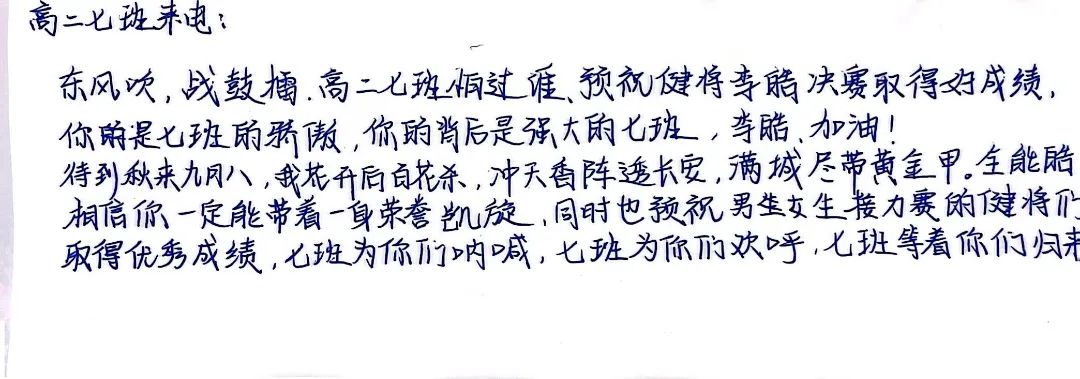 高二七班来电：
东风吹，战鼓擂，高二七班怕过谁、预祝健将李皓决赛取得好成绩，
你的是七班的骄傲，你的背后是强大的七班，李皓、加油！
待到秋来九月八，我花开后百花杀，冲天香阵透长安，满城尽带黄金甲。全能皓
相信你一定能带着一身荣誉凯旋，同时也预祝男生女生接力赛的健将们
取得优秀成绩，七班为你们呐喊，七班为你们欢呼，七班等着你们归来